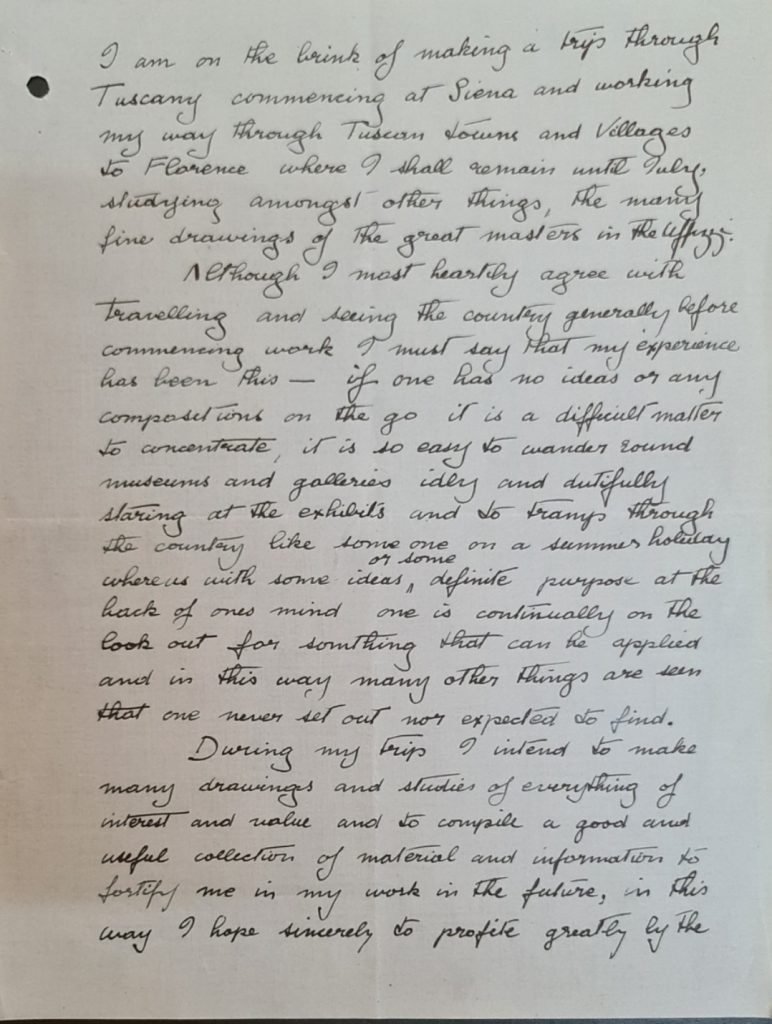 I am on the brink of making a trip through
Tuscany commencing at Siena and working
my way through Tuscan towns and Villages
to Florence where I shall remain until July,
studying amongst other things, the many
fine drawings of the great masters in the Uffizzi.
Although I most heartily agree with
travelling and seeing the country generally before
commencing work I must say that my experience
has been this — if one has no ideas or any
compositions on the go it is a difficult matter
to concentrate, it is so easy to wander round
museums and galleries idly and dutifully
staring at the exhibits and to tramp through
the country like some one on a summer holiday
or some
whereas with some ideas, definite purpose at the
back of ones mind one is continually on the
look out for somthing that can be applied
and in this way many other things are seen
that one never set out nor expected to find.
During my trip I intend to make
many drawings and studies of everything of
interest and value and to compile a good and
useful collection of material and information to
fortify me in my work in the future, in this
way I hope sincerely to profite greatly by the